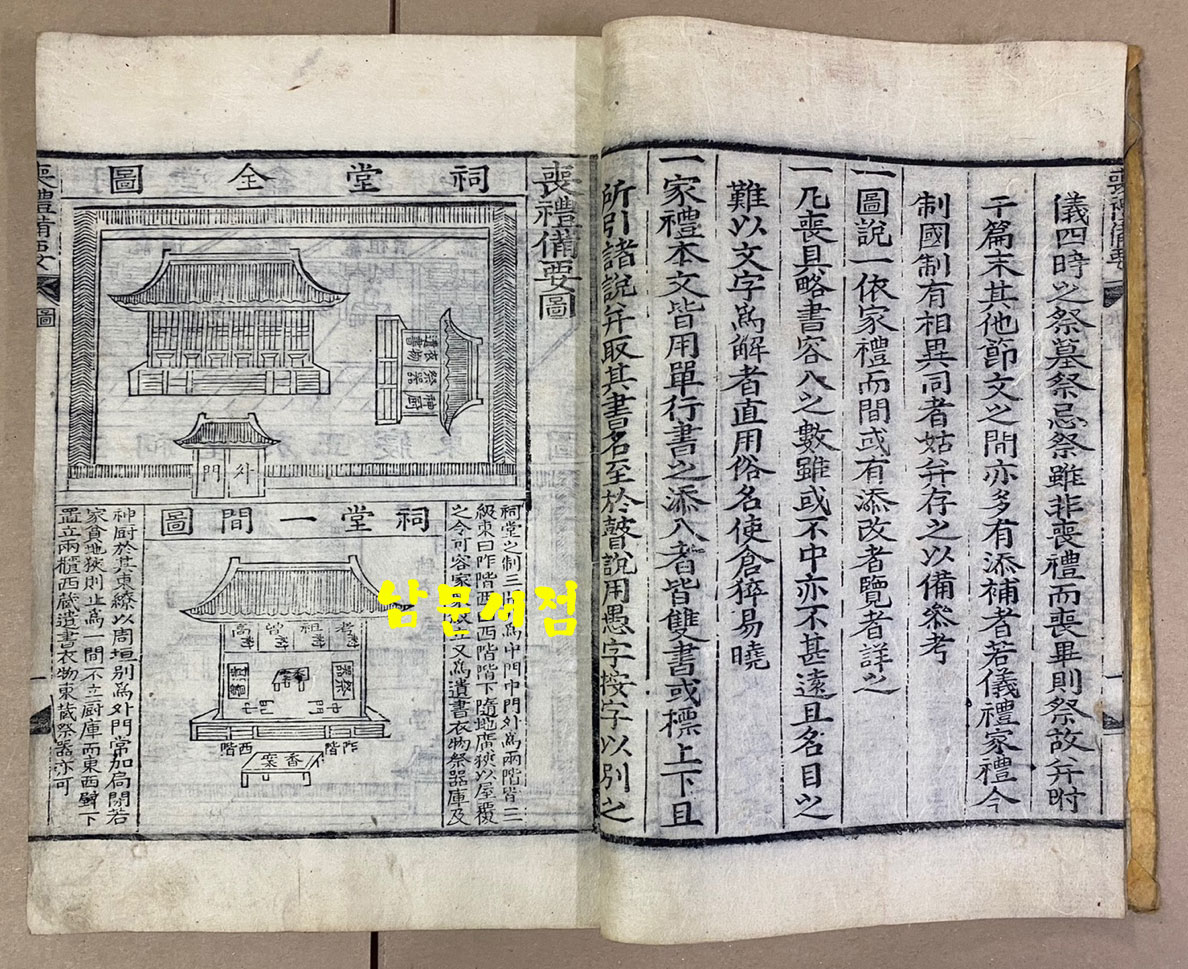 儀四時之祭墓祭忌祭雖非喪禮而喪畢則祭故幷附
于篇末其他節文之間亦多有添補者若儀禮家禮今
制國制有相異同者姑幷存之以備參考
一圖說一依家禮而間或有添改者覽者詳之
一凡喪具略書容入之數雖或不中亦不甚遠且名目之
難以文字爲解者直用俗名使倉猝易曉
一家禮本文皆用單行書之添入者皆雙書或標上下且
所引諸說幷取其書名至於瞽說用愚字按字以別之
喪禮備要圖
祠堂全圖
遺書衣物
祭器
神厨
外門
祠堂一間圖
祠堂之制三間爲中門中門外爲兩階皆三
級東曰阼階西曰西階階下隨地廣狹以屋覆
之令可容家衆叙立又爲遺書衣物祭器庫及
神厨於其東繚以周垣別爲外門常加扃閉若
家貧地狹則止爲一間不立厨庫而東西壁下
置立兩櫃西藏遺書衣物東藏祭器亦可
高 曾 祖 考
祭器
中門
西階
阼階
香案
喪禮備要
圖
喪禮備要
남문서점